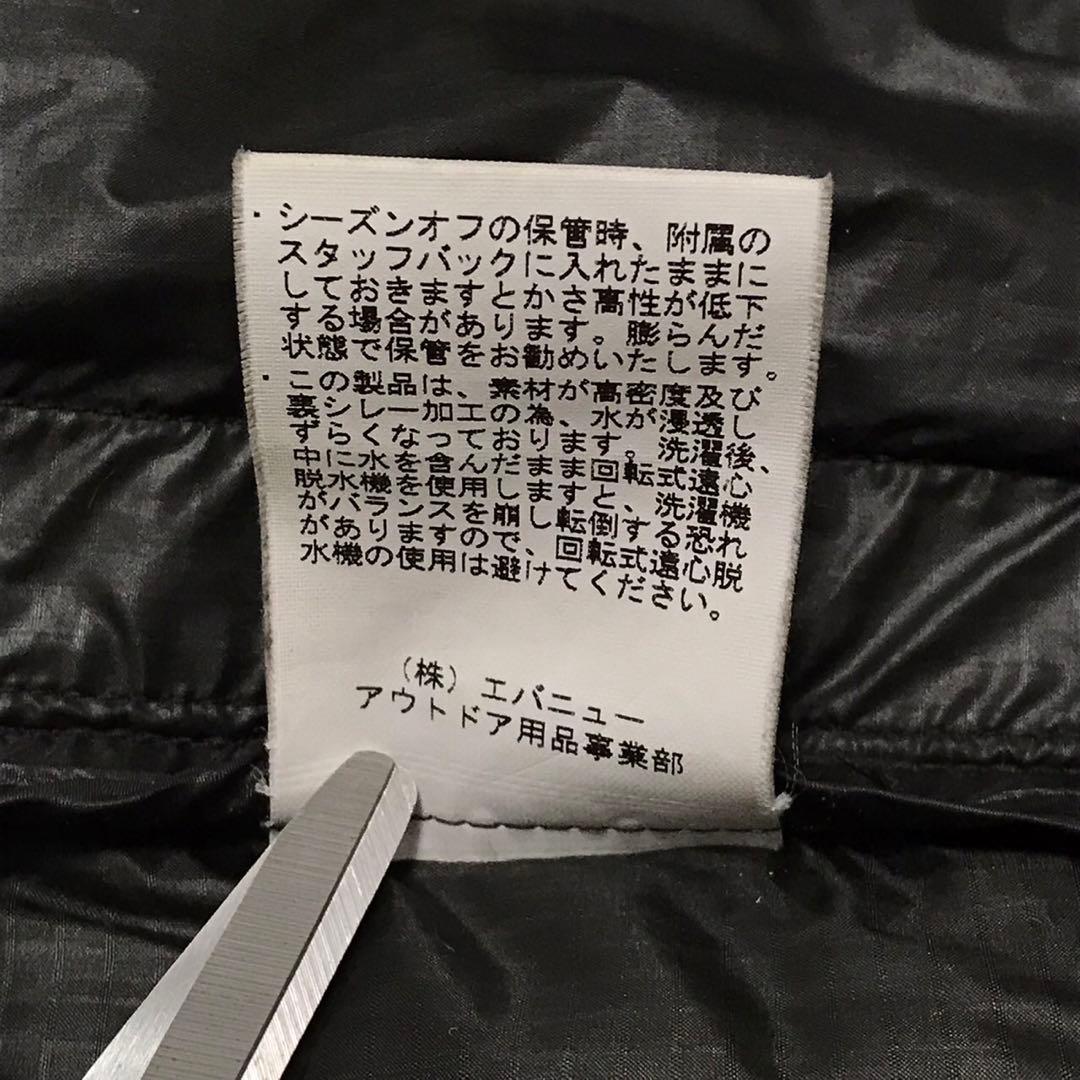 ・シーズンオフの保管時、附属の
スタッフバックに入れたままに
しておきますとかさ高性が低下
する場合があります。膨らんだ
状態で保管をお勧めいたします。
・この製品は、素材が高密度及び
裏シレー加工の為、水が浸透し
ずらくなっております。洗濯後、
中に水を含んだまま回転式遠心
脱水機を使用しますと、洗濯機
がバランスを崩し転倒する恐れ
がありますので、回転式遠心脱
水機の使用は避けてください。
(株)エバニュー
アウトドア用品事業部